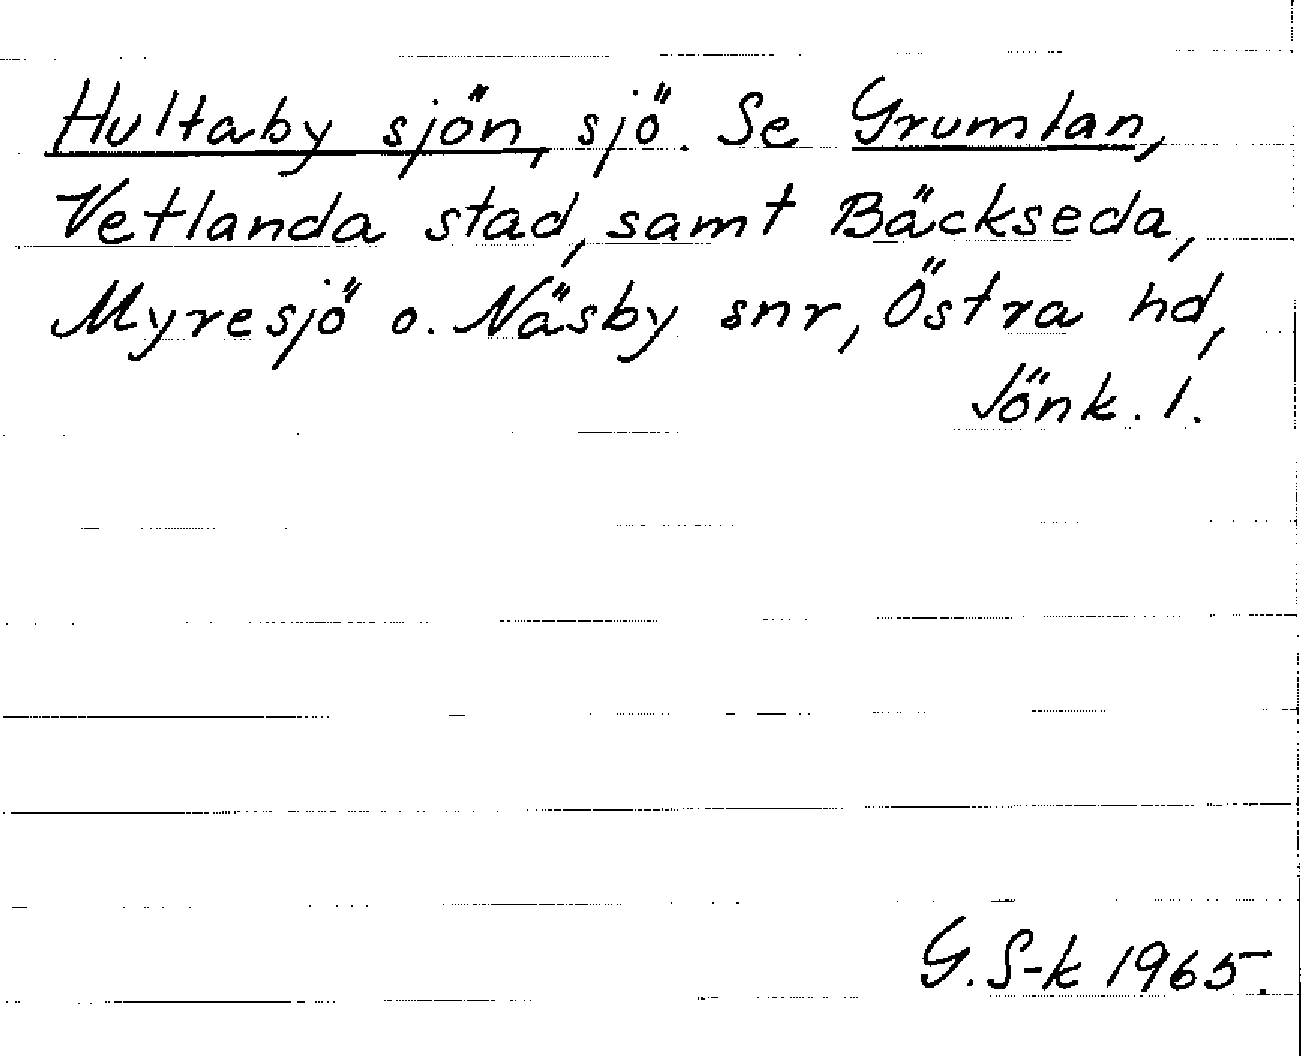 Hultaby sjön, sjö. Se Grumlan,
Vetlanda stad, samt Bäckseda,
Myresjö o. Näsby snr, Östra hd,
Jönk. l.
G. S-k 1965.